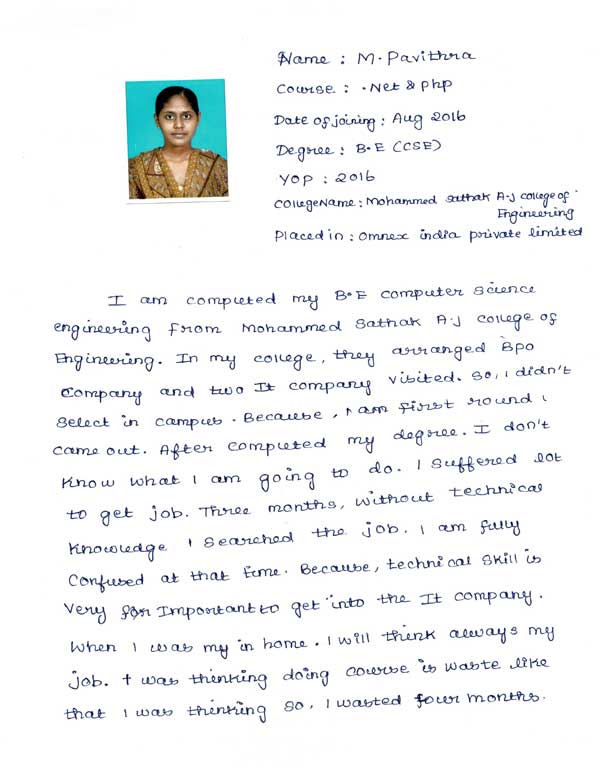 Name : M. Pavithra
Course : .Net & Php
Date of joining : Aug 2016
Degree : B.E (CSE)
YOP : 2016
College Name : Mohammed Sathak A.J college of
Engineering
Placed in : Omnex india private limited
I am completed my B.E computer science
engineering from Mohammed Sathak A.J college of
Engineering. In my college, they arranged Bpo
Company and two It company visited. So, I didn't
select in campus. Because, I am first round I
came out. After completed my degree. I don't
know what I am going to do. I suffered lot
to get job. Three months, without technical
knowledge I searched the job. I am fully
confused at that time. Because, technical skill is
very for Important to get into the It company.
When I was my in home. I will think always my
job. I was thinking doing course is waste like
that I was thinking so, I wasted four months.